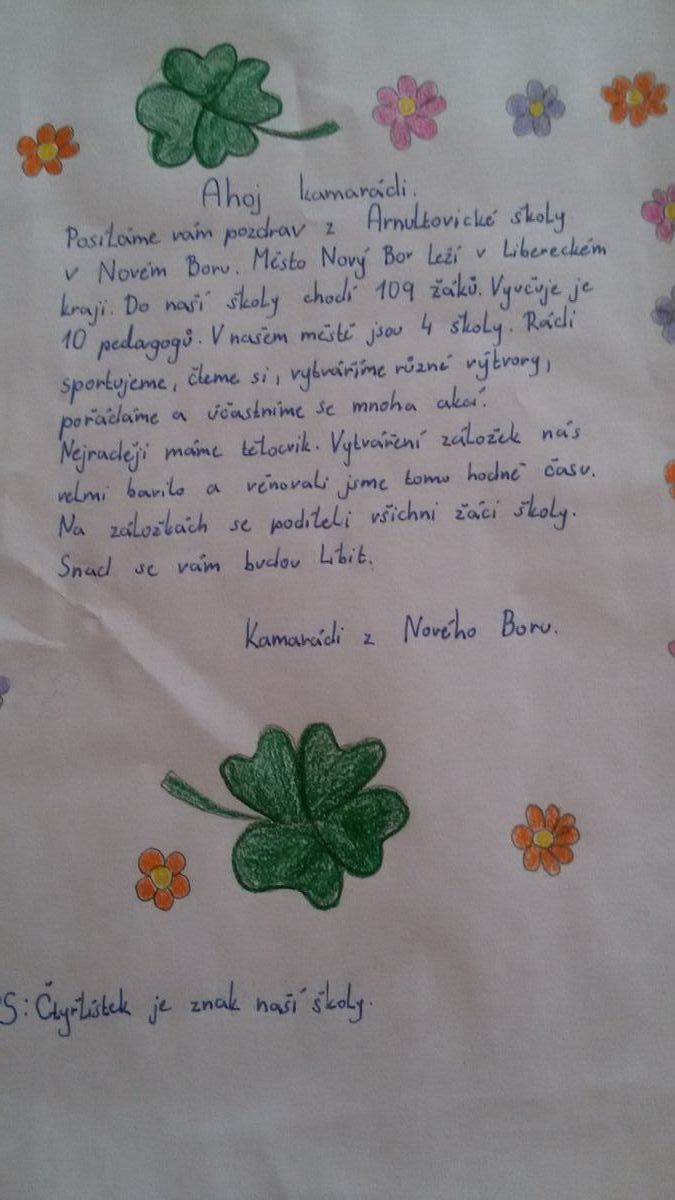 Ahoj kamarádi.
Posíláme vám pozdrav z Arnultovické školy
v Novém Boru. Město Nový Bor leží v Libereckém
kraji. Do naší školy chodí 109 žáků. Vyučuje je
10 pedagogů. V našem městě jsou 4 školy. Rádi
sportujeme, čteme si, vytváříme různé výtvory,
pořádáme a účastníme se mnoha akcí.
Nejraději máme tělocvik. Vytváření záložek nás
velmi bavilo a věnovali jsme tomu hodně času.
Na záložkách se podíleli všichni žáci školy.
Snad se vám budou líbit.
Kamarádi z Nového Boru.
S: Čtyřlístek je znak naší školy.